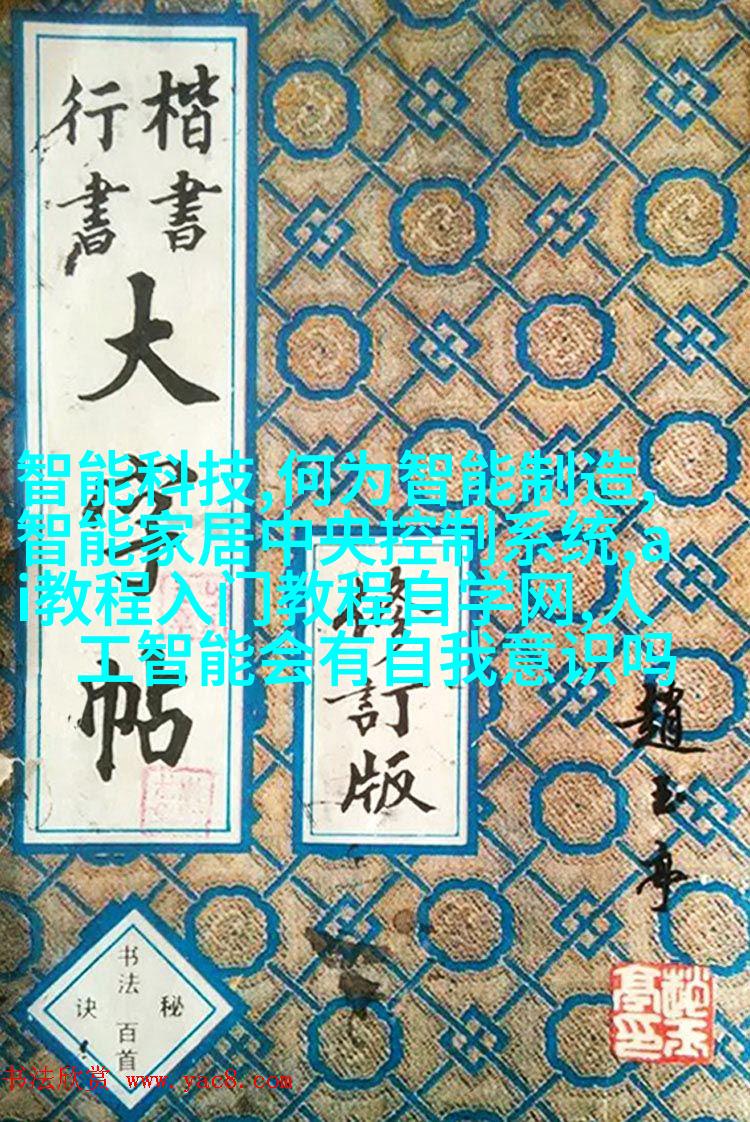 楷書
行書
大字帖
修訂版
智能科技,何为智能制造,
智能家居中央控制系统,a
i教程入门教程自学网,人
工智能会有自我意识吗
趙玉亭
书法百首
秘诀
书法欣赏 www.yac8.com